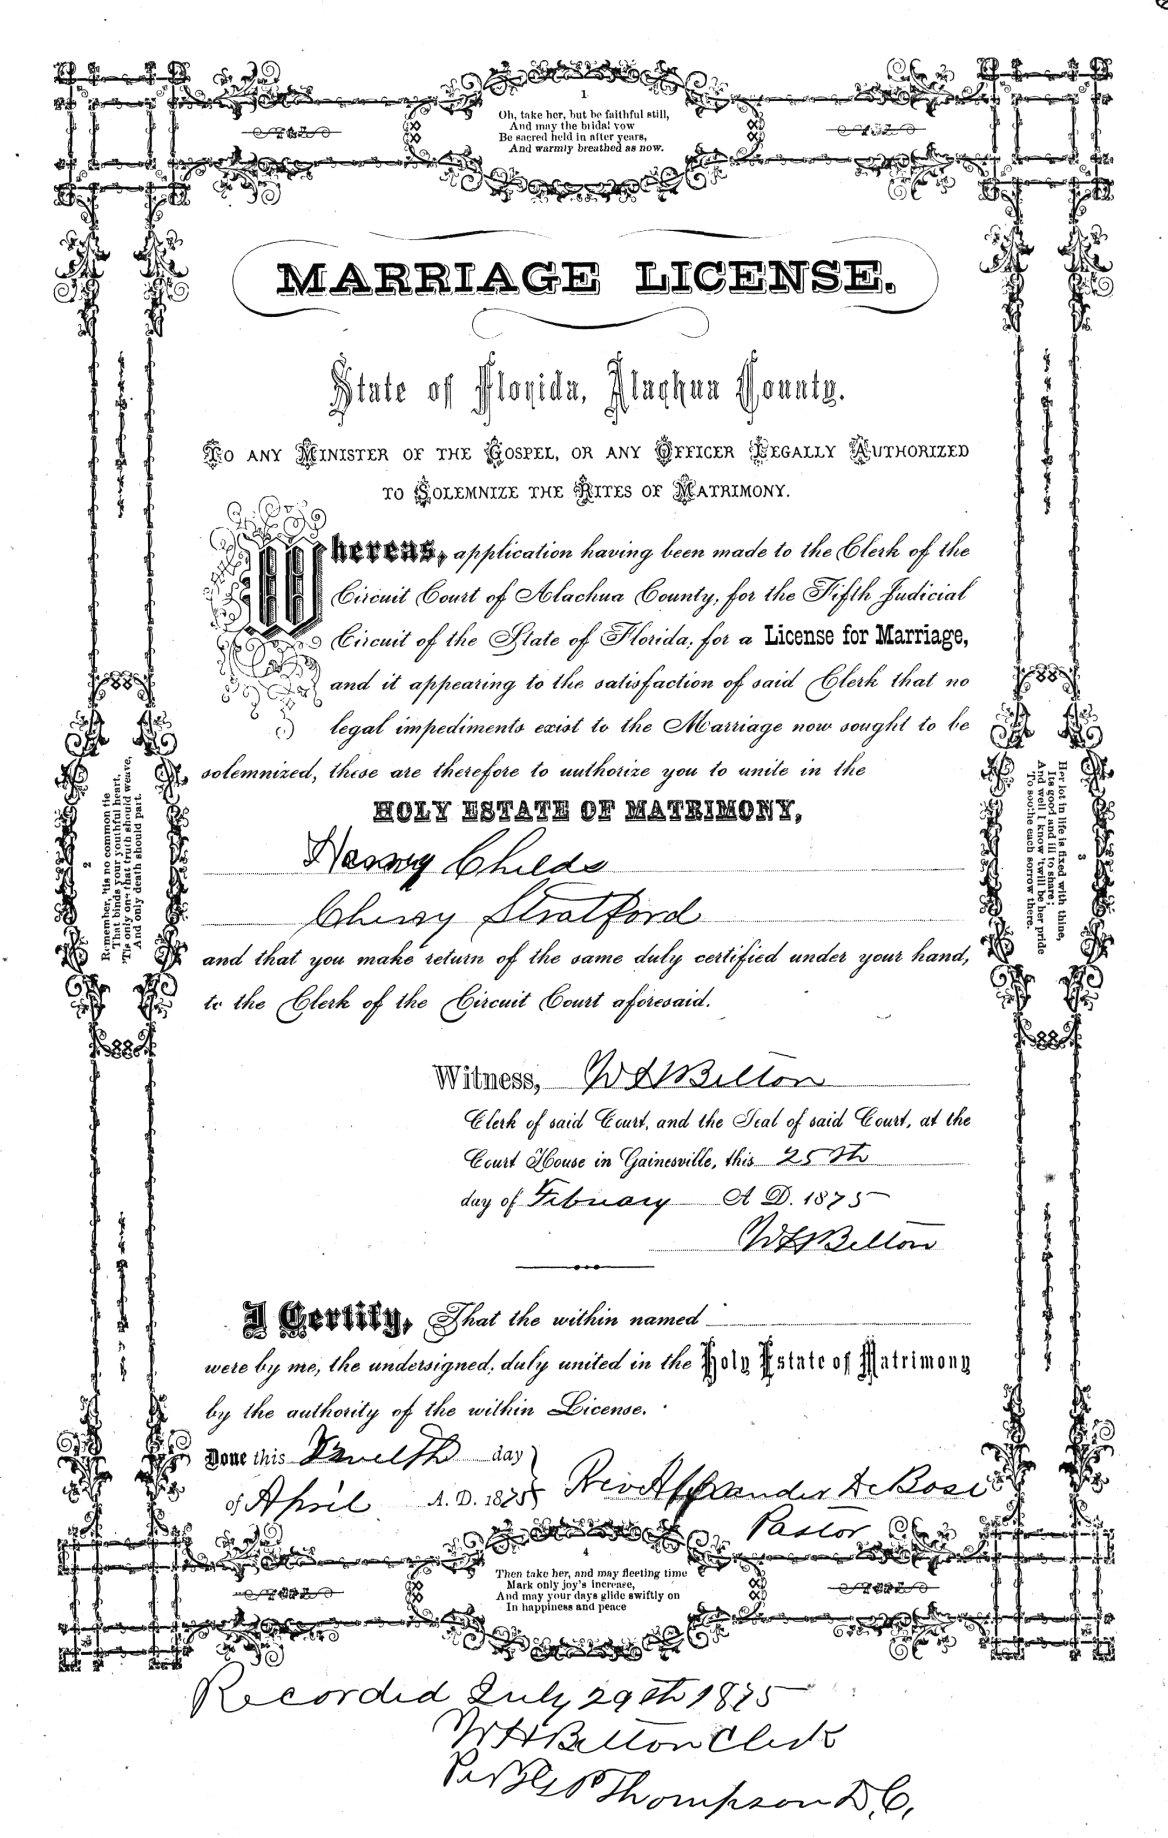 1
Oh, take her, but be faithful still,
And may the bridal vow
Be sacred held in after years,
And warmly breathed as now.
MARRIAGE LICENSE.
State of Florida, Alachua County.
TO ANY MINISTER OF THE GOSPEL, OR ANY OFFICER LEGALLY AUTHORIZED
TO SOLEMNIZE THE RITES OF MATRIMONY.
Whereas, application having been made to the Clerk of the
Circuit Court of Alachua County, for the Fifth Judicial
Circuit of the State of Florida, for a License for Marriage,
and it appearing to the satisfaction of said Clerk that no
legal impediments exist to the Marriage now sought to be
solemnized, these are therefore to authorize you to unite in the
HOLY ESTATE OF MATRIMONY,
Childs
Cherry Stratford
and that you make return of the same duly certified under your hand,
to the Clerk of the Circuit Court aforesaid.
Witness, W H Belton
Clerk of said Court, and the Seal of said Court, at the
Court House in Gainesville, this 25th
day of February A D. 1875
W H Belton
I Certify, That the within named
were by me, the undersigned, duly united in the Holy Estate of Matrimony
by the authority of the within License.
Done this Twelth day
of April A. D. 1875
Rev Alexander De Bose
Pastor
2
Remember, 'tis no common tie
That binds your youthful heart,
'Tis only one that truth should weave,
And only death should part.
3
Her lot in life is fixed with thine,
Its good and ill to share;
And well I know 'twill be her pride
To soothe each sorrow there.
4
Then take her, and may fleeting time
Mark only joy's increase,
And may your days glide swiftly on
In happiness and peace
Recorded July 29th 1875
W H Belton Clerk
Thompson D.C.